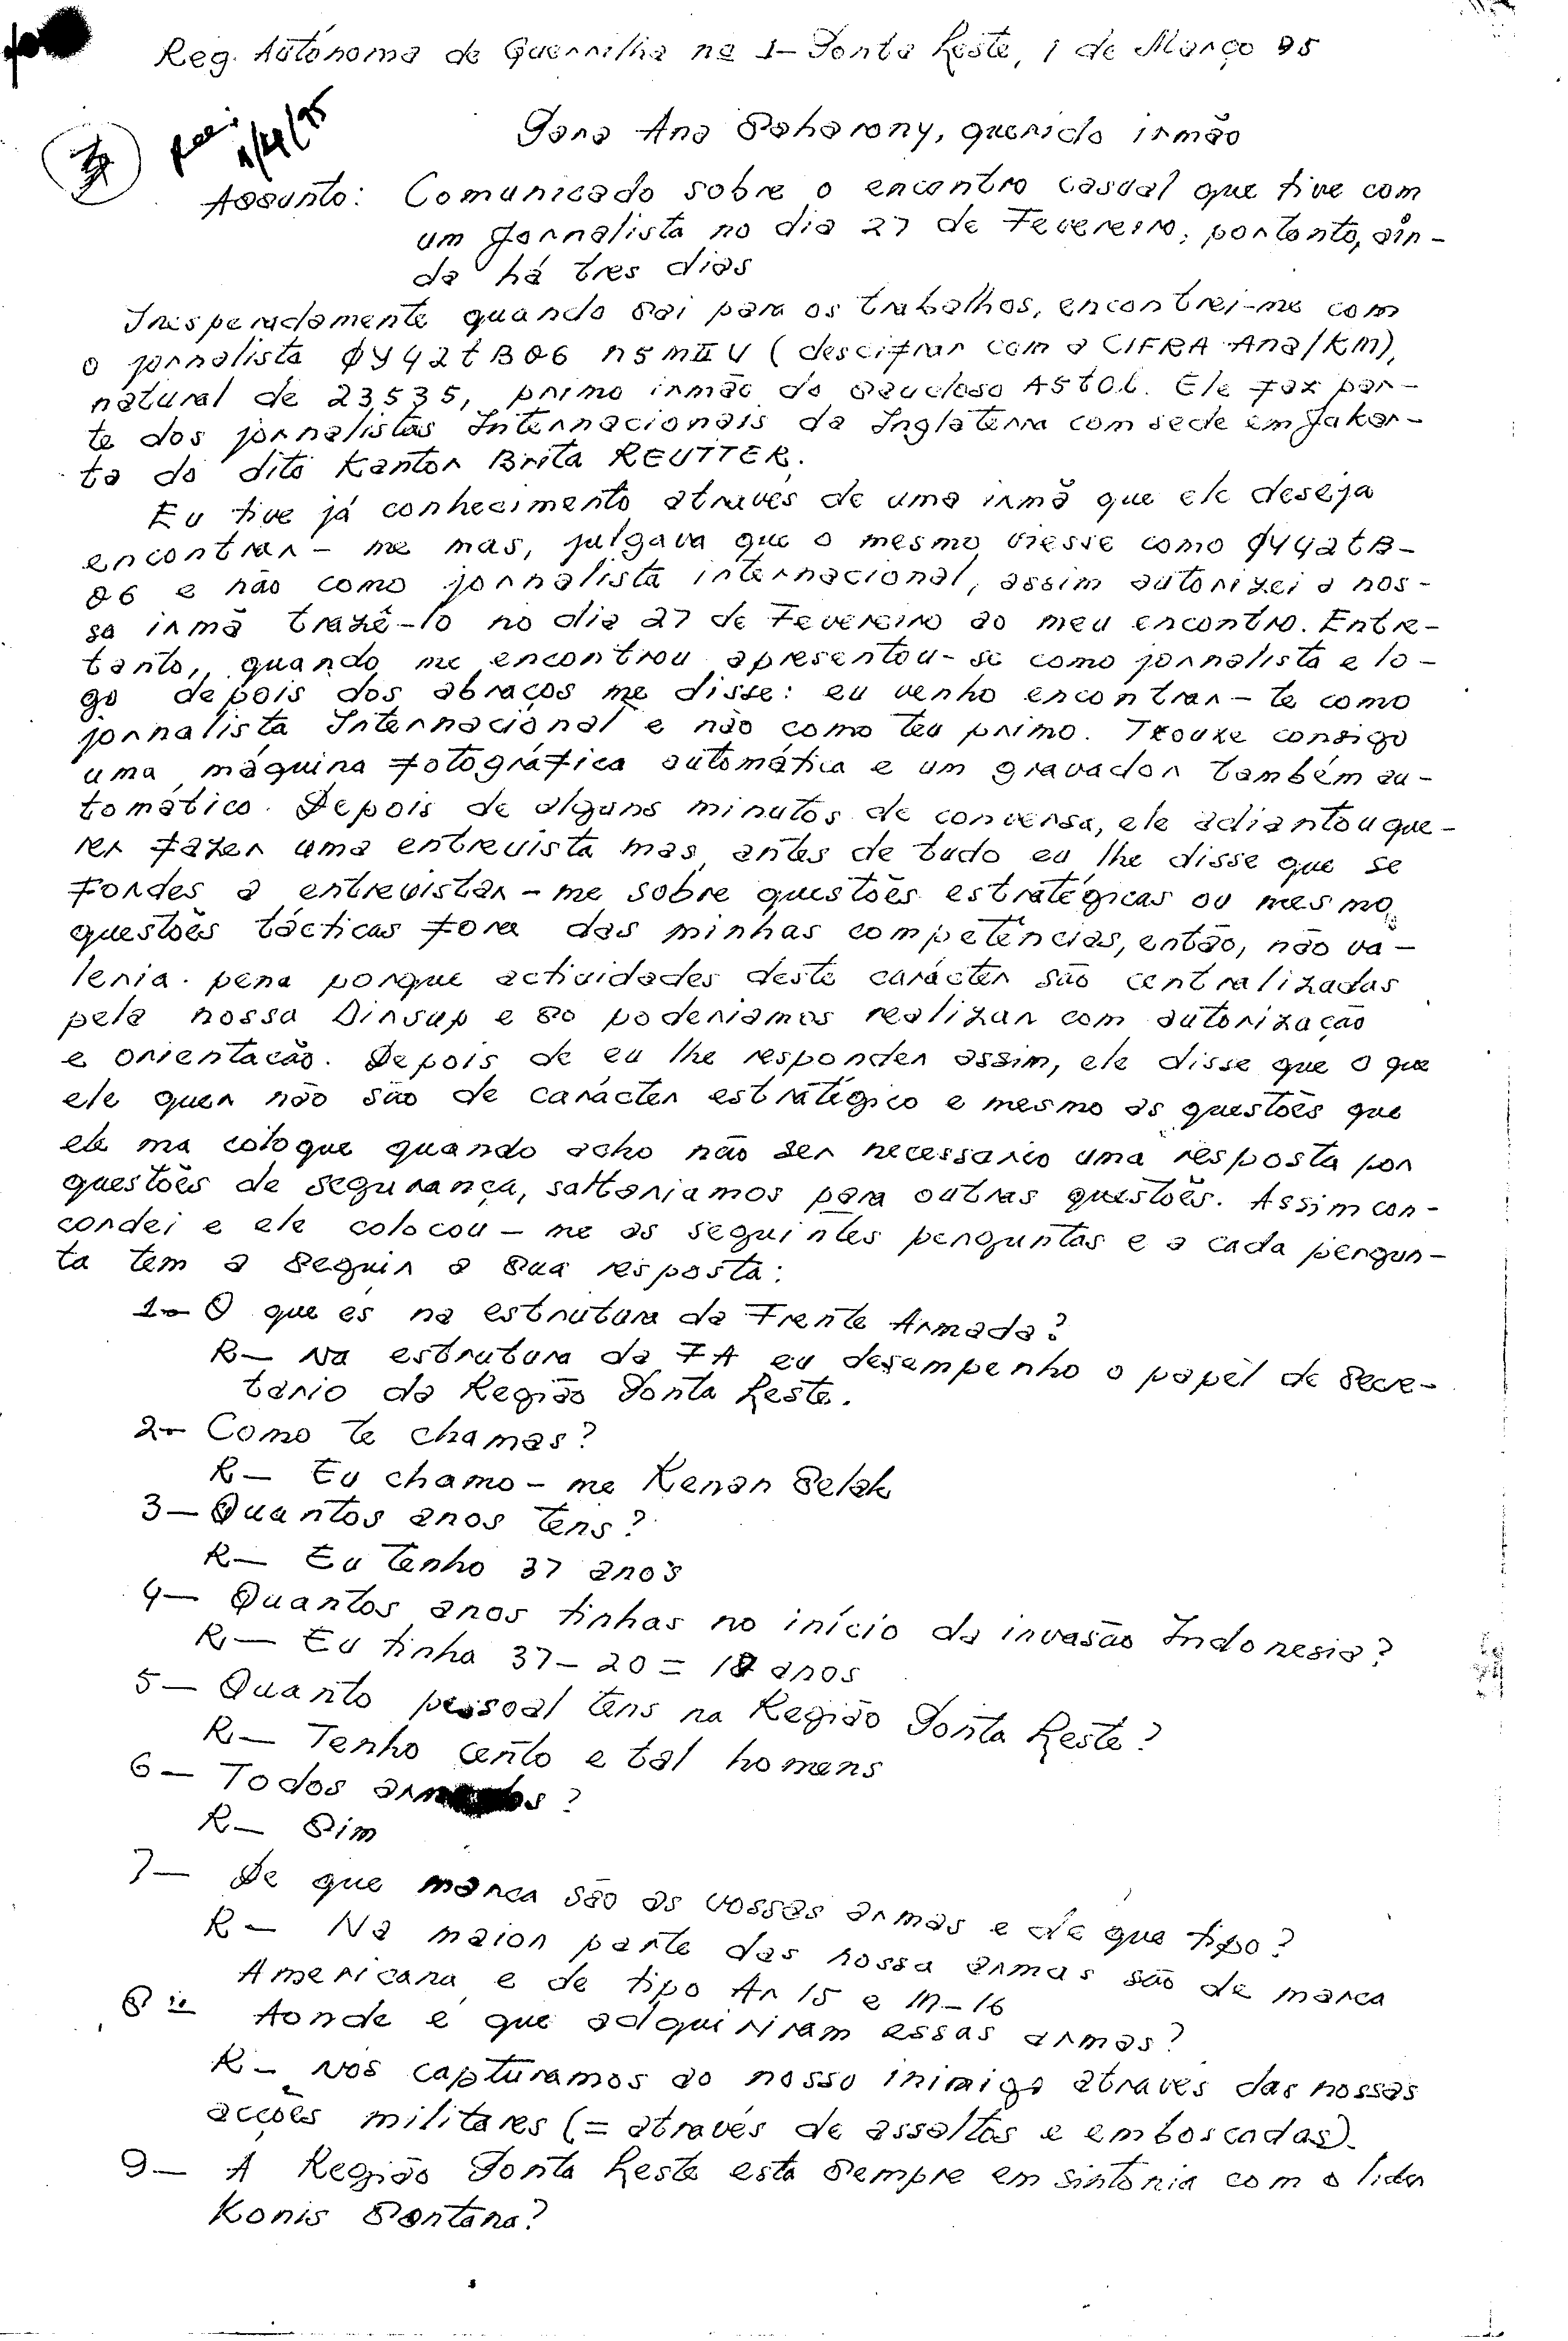 Reg. Autónoma de Guerrilha nº 1- Ponta Leste, 1 de Março 95
1/4/95
Para Ana Saharony, querido irmão
Assunto: Comunicado sobre o encontro casual que tive com
um Jornalista no dia 27 de Fevereiro, portanto, ain-
da há tres dias
Inesperadamente quando sai para os trabalhos, encontrei-me com
o jornalista (descifrar com a CIFRA Ana/KM),
natural de 23535, primo irmão do saudoso A5t0l. Ele fax par-
te dos jornalistas Internacionais da Inglaterra com sede em Jakar-
ta do dito Kantor Brita REUTTER.
Eu tive já conhecimento através de uma irmã que ele deseja
encontrar- me mas, julgava que o mesmo viesse como
06 e não como jornalista internacional, assim autorizei a nos-
sa irmã trazê-lo no dia 27 de Fevereiro ao meu encontro. Entre-
tanto, quando me encontrou apresentou-se como jornalista e lo-
go depois dos abraços me disse: eu venho encontrar- te como
jornalista Internacional e não como teu primo. Trouxe consigo
uma máquina fotográfica automática e um gravador também au-
tomático. Depois de alguns minutos de conversa, ele adiantou que-
rer fazer uma entrevista mas, antes de tudo eu lhe disse que se
Fordes a entrevistar-me sobre questões estratégicas ou mesmo
questões tácticas fora das minhas competências, então, não va-
leria pena porque actividades deste carácter são centralizadas
pela nossa Dirsup e so poderiamos realizar com autorização
e orientacão. Depois de eu lhe responder assim, ele disse que o que
ele quer não são de carácter estratégico e mesmo as questões que
ele ma coloque quando acho não ser necessario uma resposta por
questões de segurança, saltariamos para outras questões. Assim con-
cordei e ele colocou- me as seguintes perguntas e a cada pergun-
ta tem a seguir a sua resposta:
1- O que és na estrutura da Frente Armada?
R- Na estrutura da FA eu desempenho o papel de Secre-
tario da Região Ponta Leste.
2- Como te chamas?
R- Eu chamo- me Renan Selak
3- Quantos anos tens?
R- Eu tenho 37 anos
4- Quantos anos tinhas no início da invasão Indonesia?
R- Eu tinha 37-20= 18 anos
5- Quanto pessoal tens na Região Ponta Leste?
R- Tenho cento e tal homens
6- Todos armados?
R- Sim
7- De que marca são as vossas armas e de que tipo?
R- Na maior parte das nossa armas são de marca
Americana e de tipo Ar 15 e M-16
8- Aonde é que adquiriram essas armas?
R- Nós capturamos ao nosso inimigo através das nossas
acções militares (= através de assaltos e emboscadas).
9- A Região Ponta Leste esta sempre em sintonia com o lider
Konis Santana?